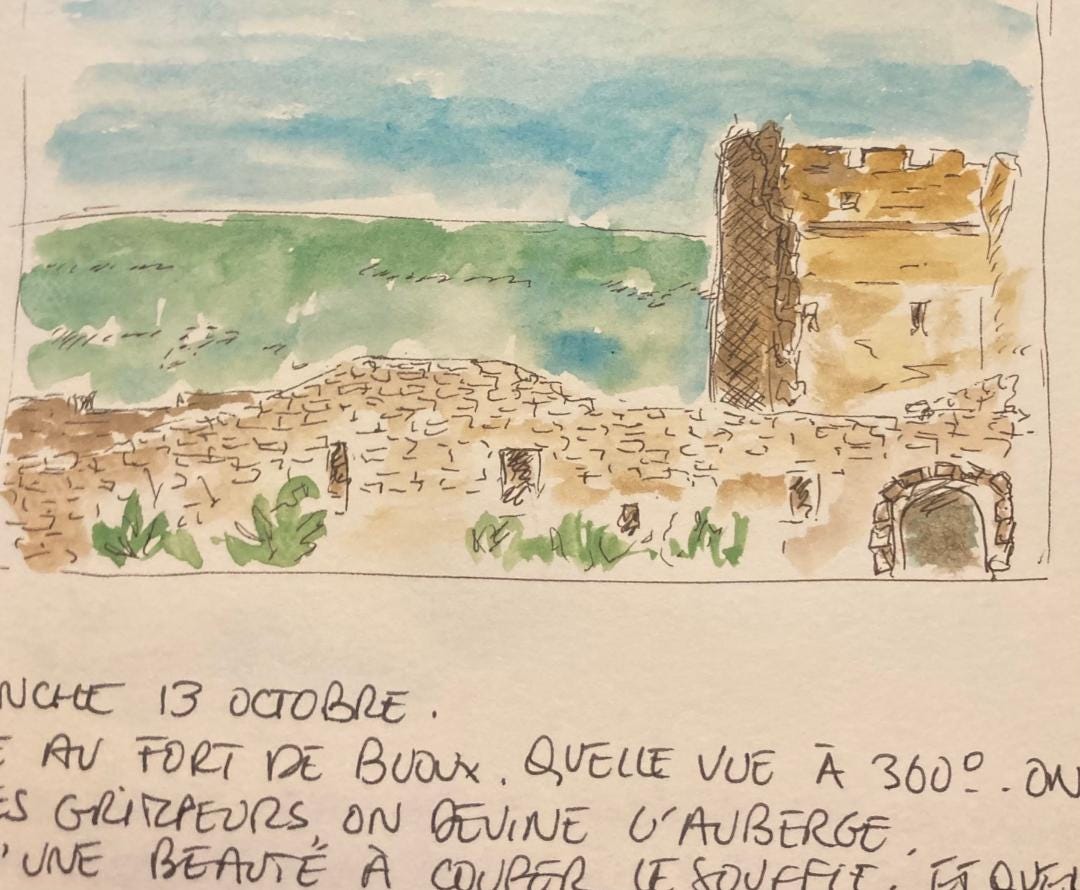 NCHE 13 OCTOBRE.
E AU FORT DE BUOUX. QUELLE VUE À 360°. ON
ES GRIMPEURS, ON DEVINE L'AUBERGE,
'UNE BEAUTÉ À COUPER LE SOUFFLE. ET QUEL